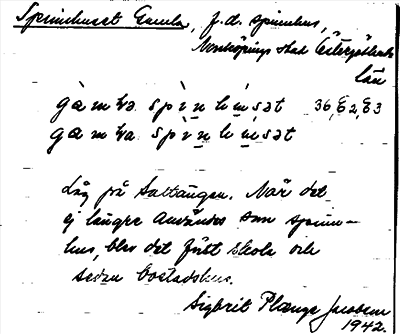 Spinnhuset Gamla, f.d. spinnhus,
Norrköpings stad Östergötlands
län
gàmla spìnhʉ́sət 36, E2, E3
gamla spìnhʉ́sət
Låg på Saltängen. När det
ej längre användes som spinn-
hus, blev det först skola och
sedan bostadshus.
Sigbrit Plænge Jacobson
1942.